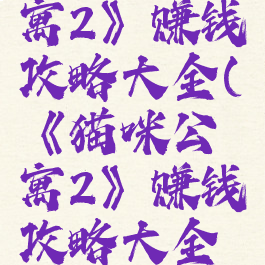 寓2》赚钱
攻略大全(
《猫咪公
寓2》赚钱
攻略大全